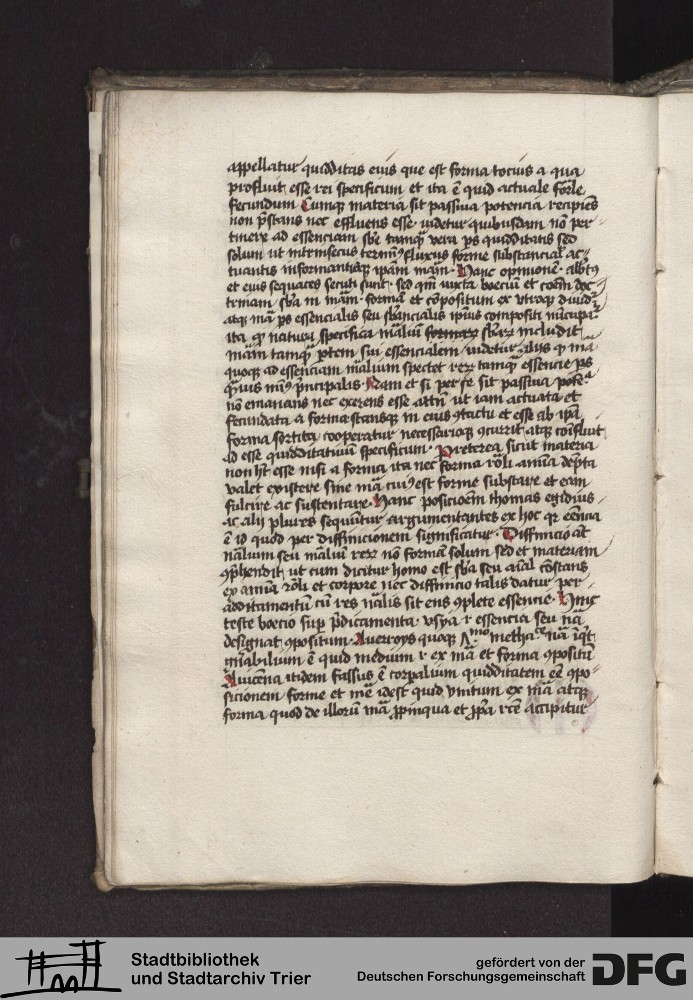 appellatur quidditas eius que est forma tocius a qua
profluit esse rei specificum et ita ē quid actuale forle
fecundum Cumq materia sit passiua potencia recipiēs
non p̄stans nec effluens esse videtur quibusdam nō per
tinere ad essenciam sbē tamq̄ vera ps quidditatis sed
solum ut intrinsecus termin9 fluxus forme substancial ac
tuantis informantisq ipām mām Hanc opinionē albt9
et eius sequaces secuti sunt sed qm̄ iuxta boeciū et coēm doc
trinam sbā in mām formā et cōpositum ex vtroq diuidr̄
atq mā ps essencialis seu sbancialis ipius compositi nūcupar̄
ita q natura specifica māliū formarr sbarr includit
mām tamq̄ ptem sui essencialem videtur alijs q mā
quoq ad essenciam mālium spectet rerr tamq̄ essencie ps
q̄uis min9 p̄ncipalis Nam et si per se sit passiua potēa
nō emanans nec exerens esse attn̄ ut iam actuata et
fecundata a forma stansq in eius 9tactu et esse ab ipā
forma sortita cooperatur necessarioq 9currit atq cōfluit
ad esse quidditatiuū specificum Preterea sicut materia
non ht esse nisi a forma ita nec forma rōli anīma dēpta
valet existere sine mā cui9 est forme substare et eam
fulcire ac sustentare Hanc posicioēm thomas egidius
ac alij plures sequūtur argumentantes ex hoc qr eēncia
ē id quod per diffinicionem significatur Diffinicio āt
nālium seu māliū rerr nō formā solum sed et materiam
9p̄hendit ut cum dicitur homo est sbā seu aīal cōstans
ex anīma rōli et corpore nec diffinicio talis datur per
additamentū cū res nālis sit ens 9plete essencie Hinc
teste boecio sup p̄dicamenta vsya i essencia seu nā
designat 9positum Auerroys quoq mo metha nā īqt
gn̄abilium ē quid medium i ex mā et forma 9positū
Auicēna itidem fassus ē corpalium quidditatem eē 9po
sicionem forme et mē idest quid vnitum ex mā atq
forma quod de illorū mā p̄pinqua et p̄pa rtē accipitur
Stadtbibliothek
und Stadtarchiv Trier
gefördert von der
Deutschen Forschungsgemeinschaft
DFG